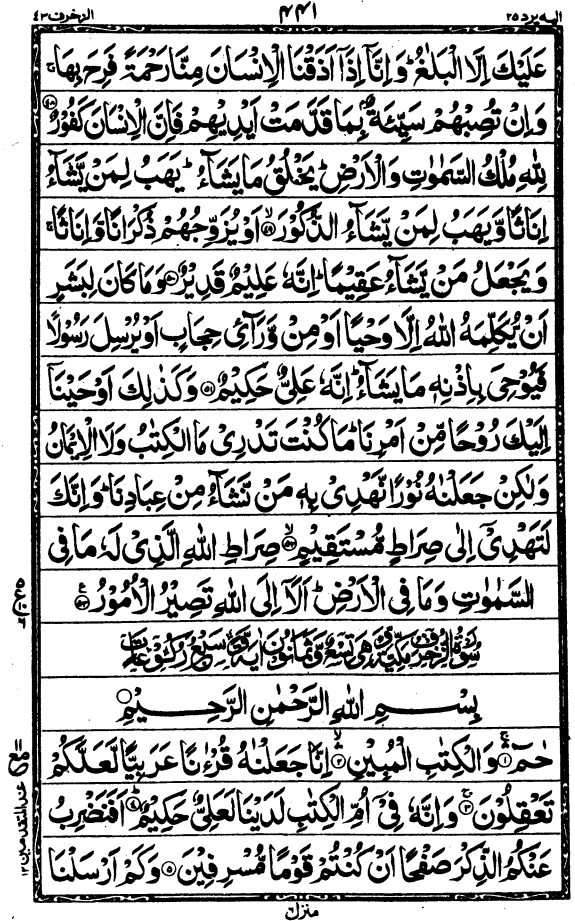 الیه یرد ۲۵
۴۴۱
الزخرف ۴۳
عَلَيْكَ اِلَّا الْبَلٰغُ ؕ وَاِنَّاۤ اِذَاۤ اَذَقْنَا الْاِنْسَانَ مِنَّا رَحْمَةً فَرِحَ بِهَا ۚ
وَاِنْ تُصِبْهُمْ سَيِّئَةٌۢ بِمَا قَدَّمَتْ اَيْدِيْهِمْ فَاِنَّ الْاِنْسَانَ كَفُوْرٌ ﴿۴۸﴾
لِلّٰهِ مُلْكُ السَّمٰوٰتِ وَالْاَرْضِ ؕ يَخْلُقُ مَا يَشَآءُ ؕ يَهَبُ لِمَنْ يَّشَآءُ
اِنَاثًا وَّيَهَبُ لِمَنْ يَّشَآءُ الذُّكُوْرَ ۙ﴿۴۹﴾ اَوْ يُزَوِّجُهُمْ ذُكْرَانًا وَّاِنَاثًا ۚ
وَيَجْعَلُ مَنْ يَّشَآءُ عَقِيْمًا ؕ اِنَّهٗ عَلِيْمٌ قَدِيْرٌ ﴿۵۰﴾ وَمَا كَانَ لِبَشَرٍ
اَنْ يُّكَلِّمَهُ اللّٰهُ اِلَّا وَحْيًا اَوْ مِنْ وَّرَآئِ حِجَابٍ اَوْ يُرْسِلَ رَسُوْلًا
فَيُوْحِيَ بِاِذْنِهٖ مَا يَشَآءُ ؕ اِنَّهٗ عَلِيٌّ حَكِيْمٌ ﴿۵۱﴾ وَكَذٰلِكَ اَوْحَيْنَاۤ
اِلَيْكَ رُوْحًا مِّنْ اَمْرِنَا ؕ مَا كُنْتَ تَدْرِيْ مَا الْكِتٰبُ وَلَا الْاِيْمَانُ
وَلٰكِنْ جَعَلْنٰهُ نُوْرًا نَّهْدِيْ بِهٖ مَنْ نَّشَآءُ مِنْ عِبَادِنَا ؕ وَاِنَّكَ
لَتَهْدِيْۤ اِلٰى صِرَاطٍ مُّسْتَقِيْمٍ ۙ﴿۵۲﴾ صِرَاطِ اللّٰهِ الَّذِيْ لَهٗ مَا فِي
السَّمٰوٰتِ وَمَا فِي الْاَرْضِ ؕ اَلَاۤ اِلَى اللّٰهِ تَصِيْرُ الْاُمُوْرُ ﴿۵۳﴾
سُوْرَةُ الزُّخْرُفِ مَكِّيَّةٌ وَّهِيَ تِسْعٌ وَّثَمَانُوْنَ اٰيَةً وَّسَبْعُ رُكُوْعَاتٍ
بِسْمِ اللّٰهِ الرَّحْمٰنِ الرَّحِيْمِ
حٰمٓ ﴿۱﴾ وَالْكِتٰبِ الْمُبِيْنِ ﴿۲﴾ اِنَّا جَعَلْنٰهُ قُرْءٰنًا عَرَبِيًّا لَّعَلَّكُمْ
تَعْقِلُوْنَ ﴿۳﴾ وَاِنَّهٗ فِيْۤ اُمِّ الْكِتٰبِ لَدَيْنَا لَعَلِيٌّ حَكِيْمٌ ﴿۴﴾ اَفَنَضْرِبُ
عَنْكُمُ الذِّكْرَ صَفْحًا اَنْ كُنْتُمْ قَوْمًا مُّسْرِفِيْنَ ﴿۵﴾ وَكَمْ اَرْسَلْنَا
منزل